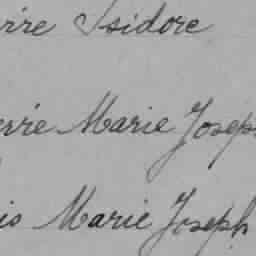 erre Isidore
erre Marie Joseph
is Marie Joseph